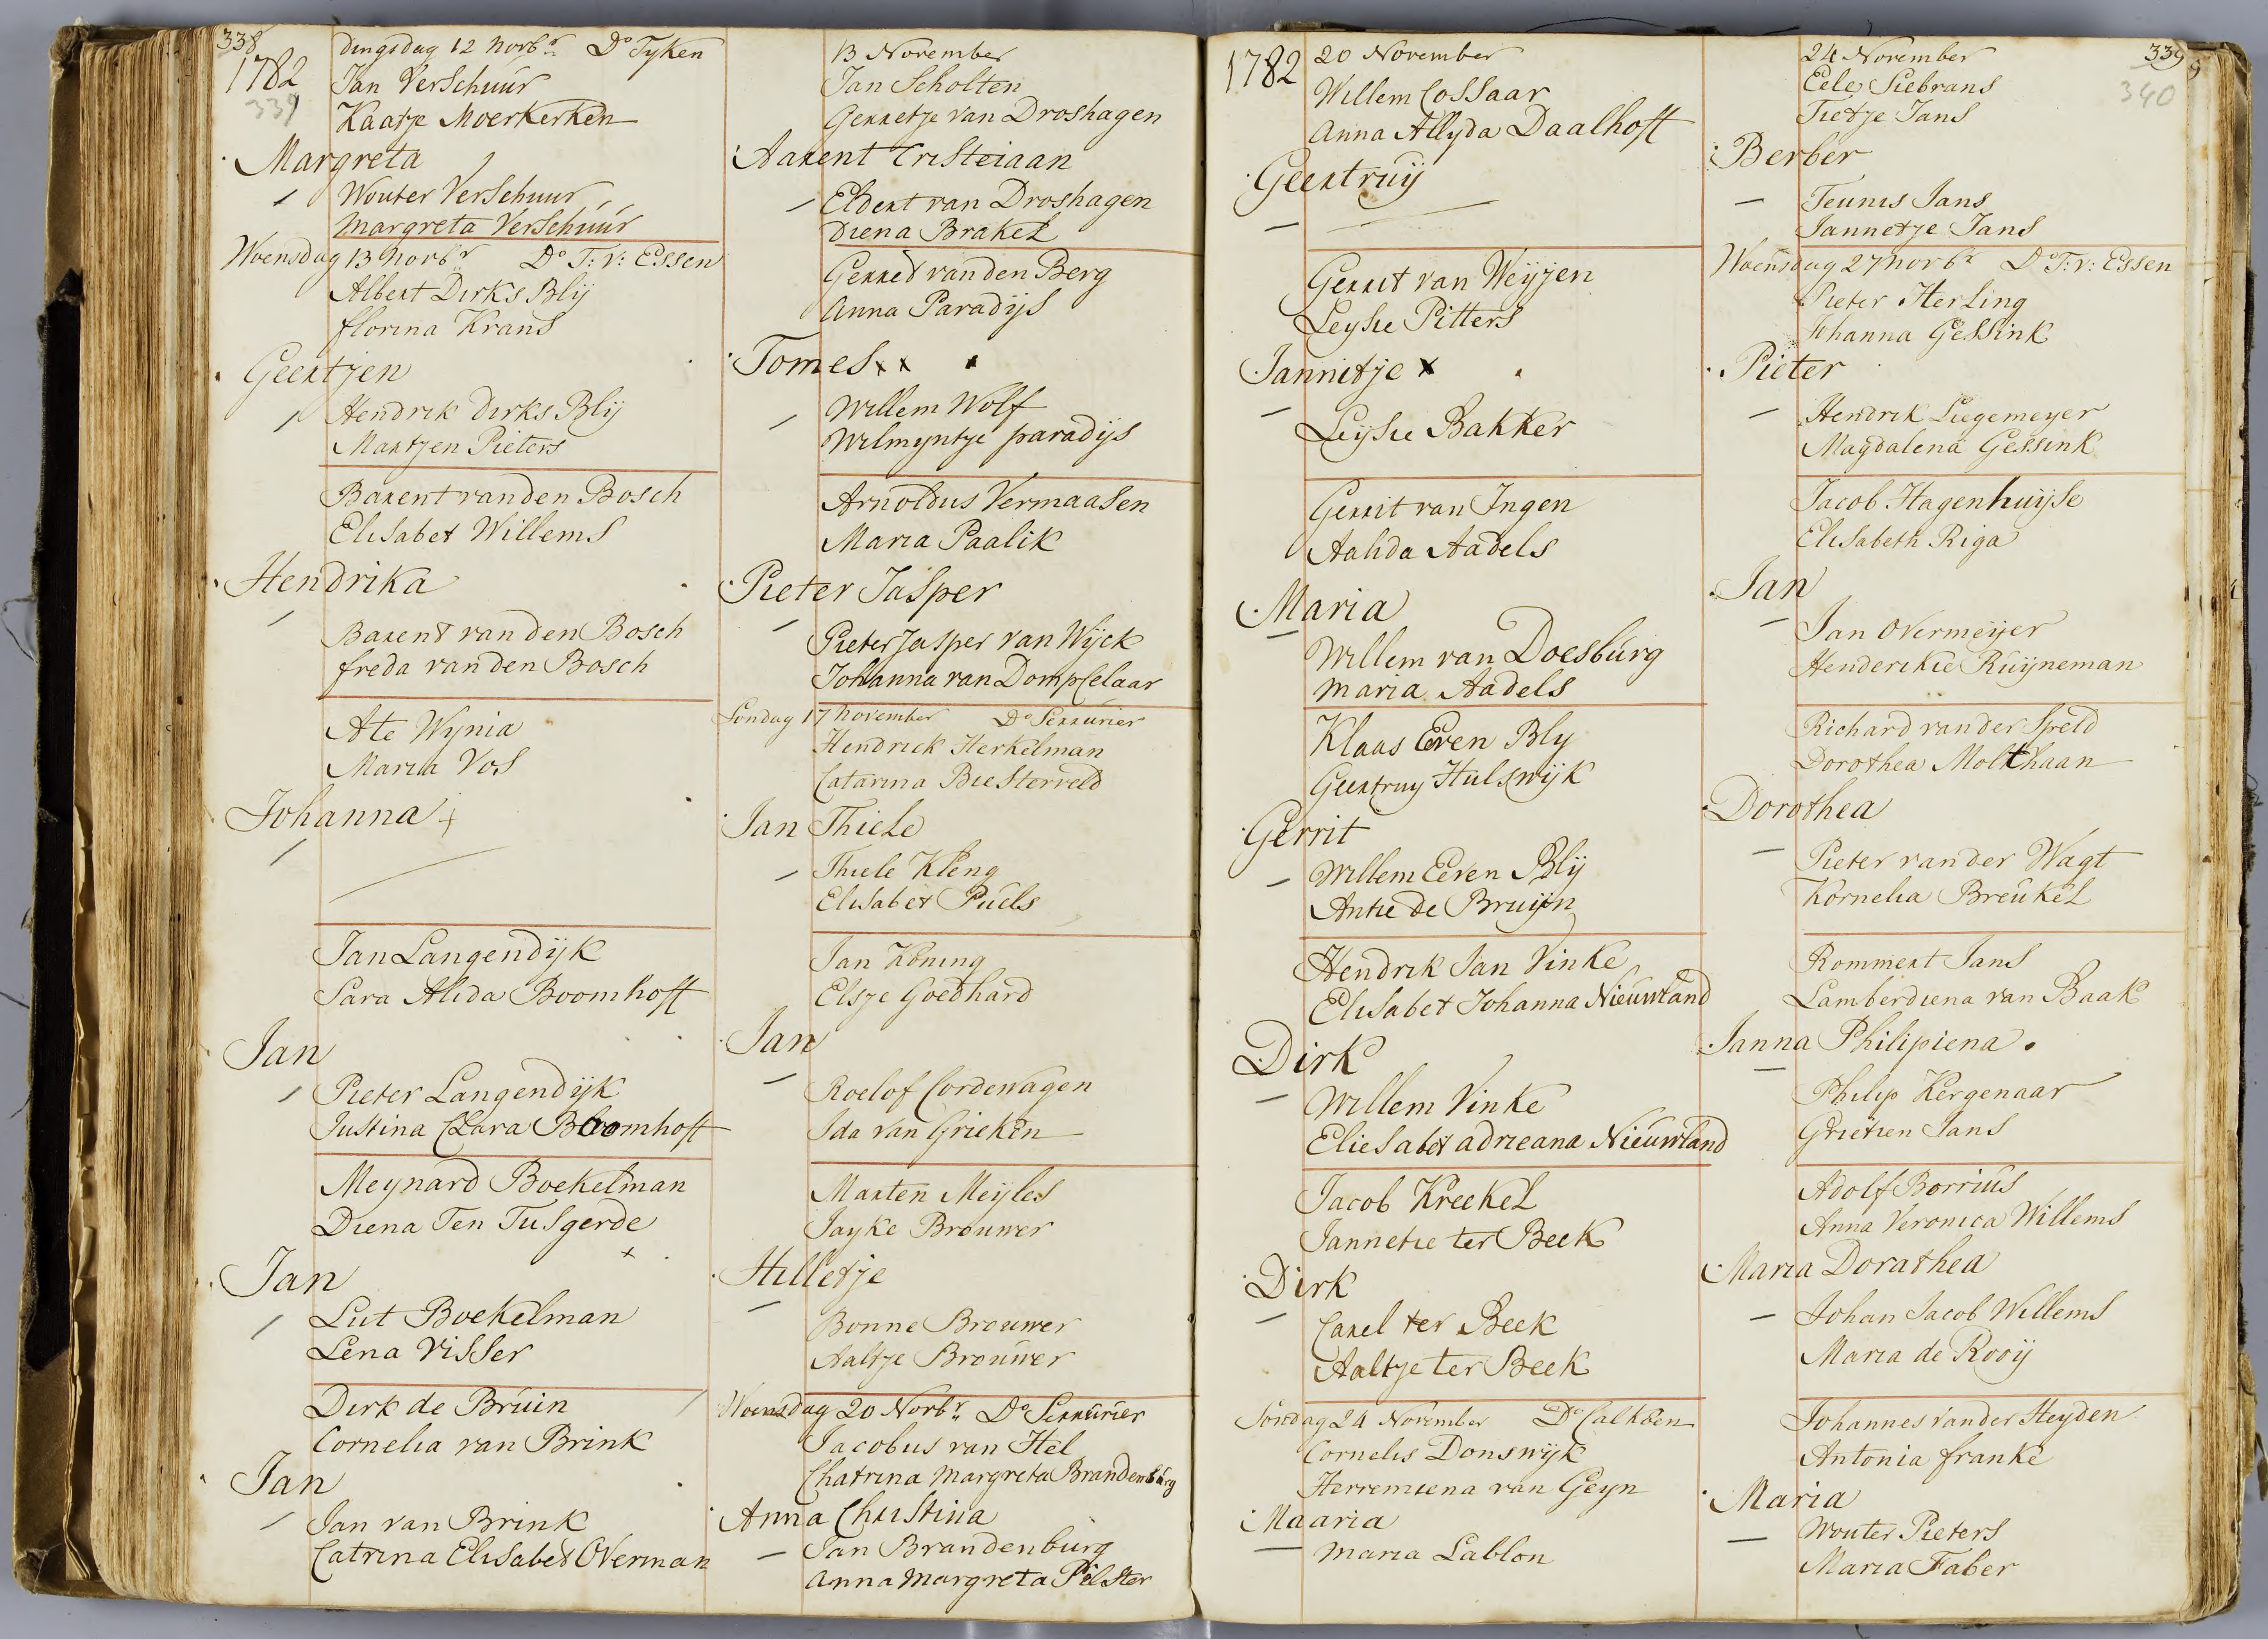 338
1782
339
Dingsdag 12 Novbr Do Tyken
Jan VerSchuur
Kaatje Moerkerken
Margreta
Wouter VerSchuur
Margreta VerSchuur
Woensdag 13 Novbr Do T: v: Essen
Albert Dirks Blij
florina Krans
Geertjen
Hendrik dirks Blij
Martjen Pieters
Barent van den Bosch
Elisabet Willems
Hendrika
Barent van den Bosch
freda van den Bosch
Ate Wynia
Maria Vos
Johanna
Jan Langendijk
Sara Alida Boomhoff
Jan
Pieter Langendijk
Justina Clara Boomhoft
Meynard Boekelman
Diena Ten Tusgerde
Jan
Lut Boekelman
Lena Visser
Dirk de Bruin
Cornelia van Brink
Jan
Jan van Brink
Catrina Elisabet Overman
13 November
Jan Scholten
Gerretje van Droshagen
Aarent Cristeiaan
Eldert van Droshagen
Diena Brakel
Gerret van den Berg
Anna Paradijs
Tomes
Willem Wolf
Wilmyntje paradijs
Arnoldus Vermaasen
Maria Paalik
Pieter Jasper
Pieter Jasper van Wijck
Johanna van Dompselaar
Sondag 17 November Do Serrurier
Hendrick Herkelman
Catarina Biesterveld
Jan Thiele
Thiele Kleng
Elisabet Puels
Jan Koning
Elsje Goedhard
Jan
Roelof Cordewagen
Ida van Grieken
Marten Meyles
Jayke Brouwer
Hilletje
Bonne Brouwer
Aaltje Brouwer
Woensdag 20 Novbr Do Serrurier
Jacobus van Hel
Chatrina Margreta Brandenburg
Anna Christina
Jan Brandenburg
Anna Margreta Pilster
1782
20 November
Willem Cossaar
Anna Allyda Daalhoft
Geertruij
Gerrit van Weyjen
Leysie Pitters
Jannitje
Leijsie Bakker
Gerrit van Ingen
Aalida Aadels
Maria
Willem van Doesburg
Maria Aadels
Klaas Even Bly
Geertruy Hulswijk
Gerrit
Willem Eeven Blij
Antie de Bruijn
Hendrik Jan Vinke
Elisabet Johanna Nieuwland
Dirk
Willem Vinke
Eliesabet adrieana Nieuwland
Jacob Kreekel
Jannetie ter Beek
Dirk
Carel ter Beek
Aaltje ter Beek
Sondag 24 November Do Calkoen
Cornelis Donswijk
Herremiena van Geyn
Maaria
Maria Lablon
339
340
24 November
Eele Siebrans
Tietje Jans
Berber
Teunis Jans
Jannetje Jans
Woensdag 27 Novbr Do T: v: Essen
Pieter Herling
Johanna Gessink
Pieter
Hendrik Liegemeyer
Magdalena Gessink
Jacob Hagenhuijse
Elisabeth Riga
Jan
Jan Overmeijer
Henderikie Ruijneman
Richard van der Speld
Dorothea Molthaan
Dorothea
Pieter van der Wagt
Kornelia Breukel
Rommert Jans
Lamberdiena van Baak
Janna Philipiena
Philip Kergenaar
Grietien Jans
Adolf Borrius
Anna Veronica Willems
Maria Dorathea
Johan Jacob Willems
Maria de Rooij
Johannes van der Heyden
Antonia franke
Maria
Wouter Pieters
Maria Faber